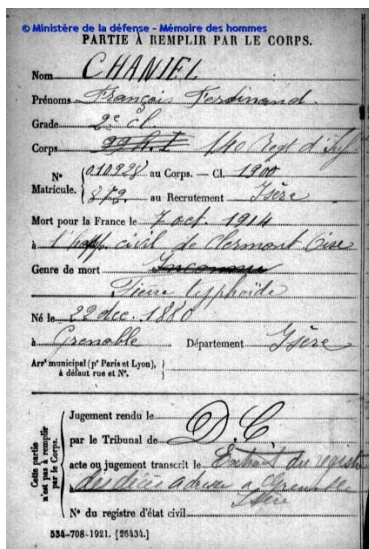 © Ministère de la défense - Mémoire des hommes
PARTIE À REMPLIR PAR LE CORPS.
Nom CHANIEL
Prénoms François Ferdinand
Grade 2e cl
Corps 140 Regt d'Inf
N° Matricule. 010928 au Corps. — Cl. 1900
872 au Recrutement Isère
Mort pour la France le 7 oct. 1914
à l'hop. civil de Clermont Oise
Genre de mort Inconnu
Fièvre typhoïde
Né le 22 dec. 1880
à Grenoble Département Isère
Arrt municipal (pr Paris et Lyon),
à défaut rue et N°.
Cette partie n'est pas à remplir par le Corps.
Jugement rendu le
par le Tribunal de D.C
acte ou jugement transcrit le Extrait du registre
des décès adressé à Grenoble
Isère
N° du registre d'état civil
534-708-1921. [26434.]